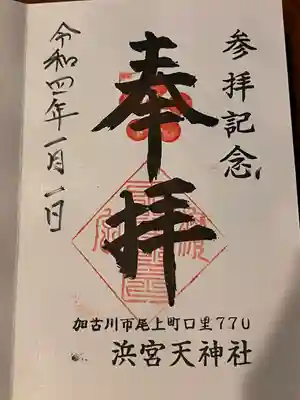 参拝記念
奉拝
令和四年一月一日
加古川市尾上町口里770
浜宮天神社